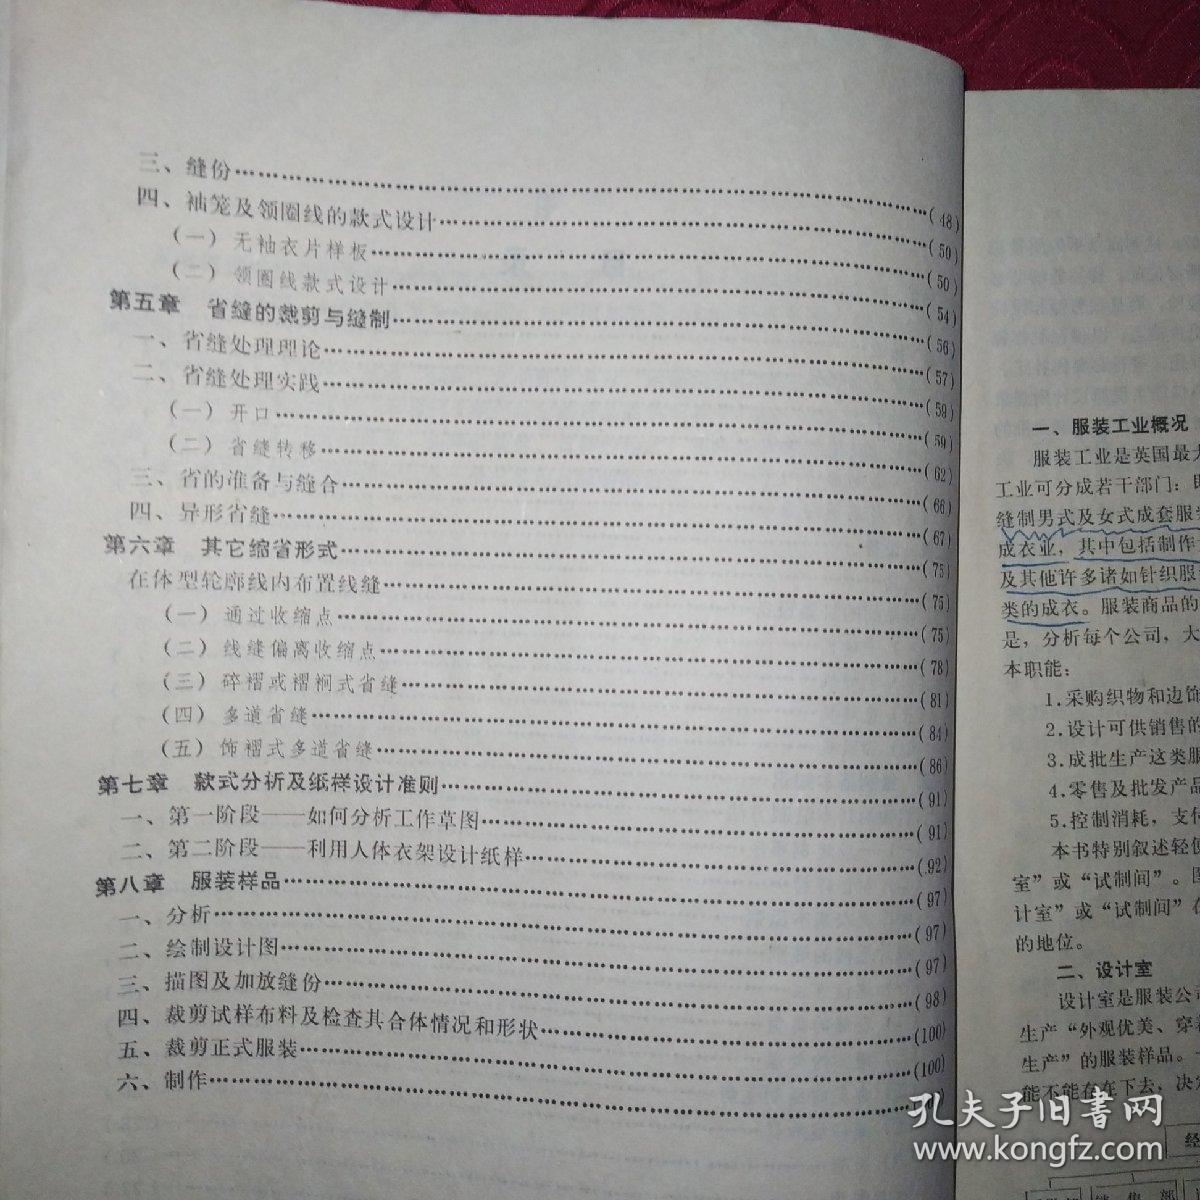 三、缝份……(48)
四、袖笼及领圈线的款式设计……(50)
(一) 无袖衣片样板……(50)
(二) 领圈线款式设计……(54)
第五章 省缝的裁剪与缝制……(56)
一、省缝处理理论……(57)
二、省缝处理实践……(59)
(一) 开口……(59)
(二) 省缝转移……(62)
三、省的准备与缝合……(66)
四、异形省缝……(67)
第六章 其它缩省形式……(75)
在体型轮廓线内布置线缝……(75)
(一) 通过收缩点……(75)
(二) 线缝偏离收缩点……(78)
(三) 碎褶或褶裥式省缝……(81)
(四) 多道省缝……(84)
(五) 饰褶式多道省缝……(86)
第七章 款式分析及纸样设计准则……(91)
一、第一阶段——如何分析工作草图……(91)
二、第二阶段——利用人体衣架设计纸样……(92)
第八章 服装样品……(97)
一、分析……(97)
二、绘制设计图……(97)
三、描图及加放缝份……(98)
四、裁剪试样布料及检查其合体情况和形状……(100)
五、裁剪正式服装……(100)
六、制作……
一、服装工业概况
服装工业是英国最大
工业可分成若干部门：
缝制男式及女式成套服装
成衣业，其中包括制作
及其他许多诸如针织服
类的成衣。服装商品的
是，分析每个公司，大
本职能：
1.采购织物和边饰
2.设计可供销售的
3.成批生产这类服
4.零售及批发产品
5.控制消耗，支付
本书特别叙述轻便
室”或“试制间”。
计室”或“试制间”在
的地位。
二、设计室
设计室是服装公司
生产“外观优美、穿着
生产”的服装样品。
能不能存在下去，决定
经
孔夫子旧书网
www.kongfz.com